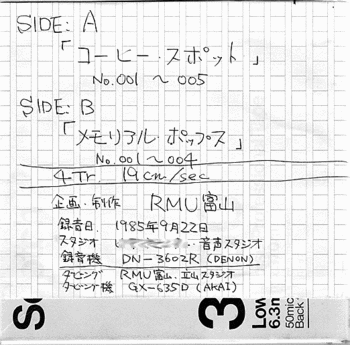 SIDE: A
「コーヒー・スポット」
No.001 ～ 005
SIDE: B
「メモリアル・ポップス」
No.001 ～ 004
4-Tr. 19cm/sec
企画・制作 RMU富山
録音日 1985年9月22日
スタジオ 音声スタジオ
録音機 DN-3602R (DENON)
ダビング RMU富山、立山スタジオ
ダビング機 GX-635D (AKAI)
3
Low
6.3m
50mic
Back